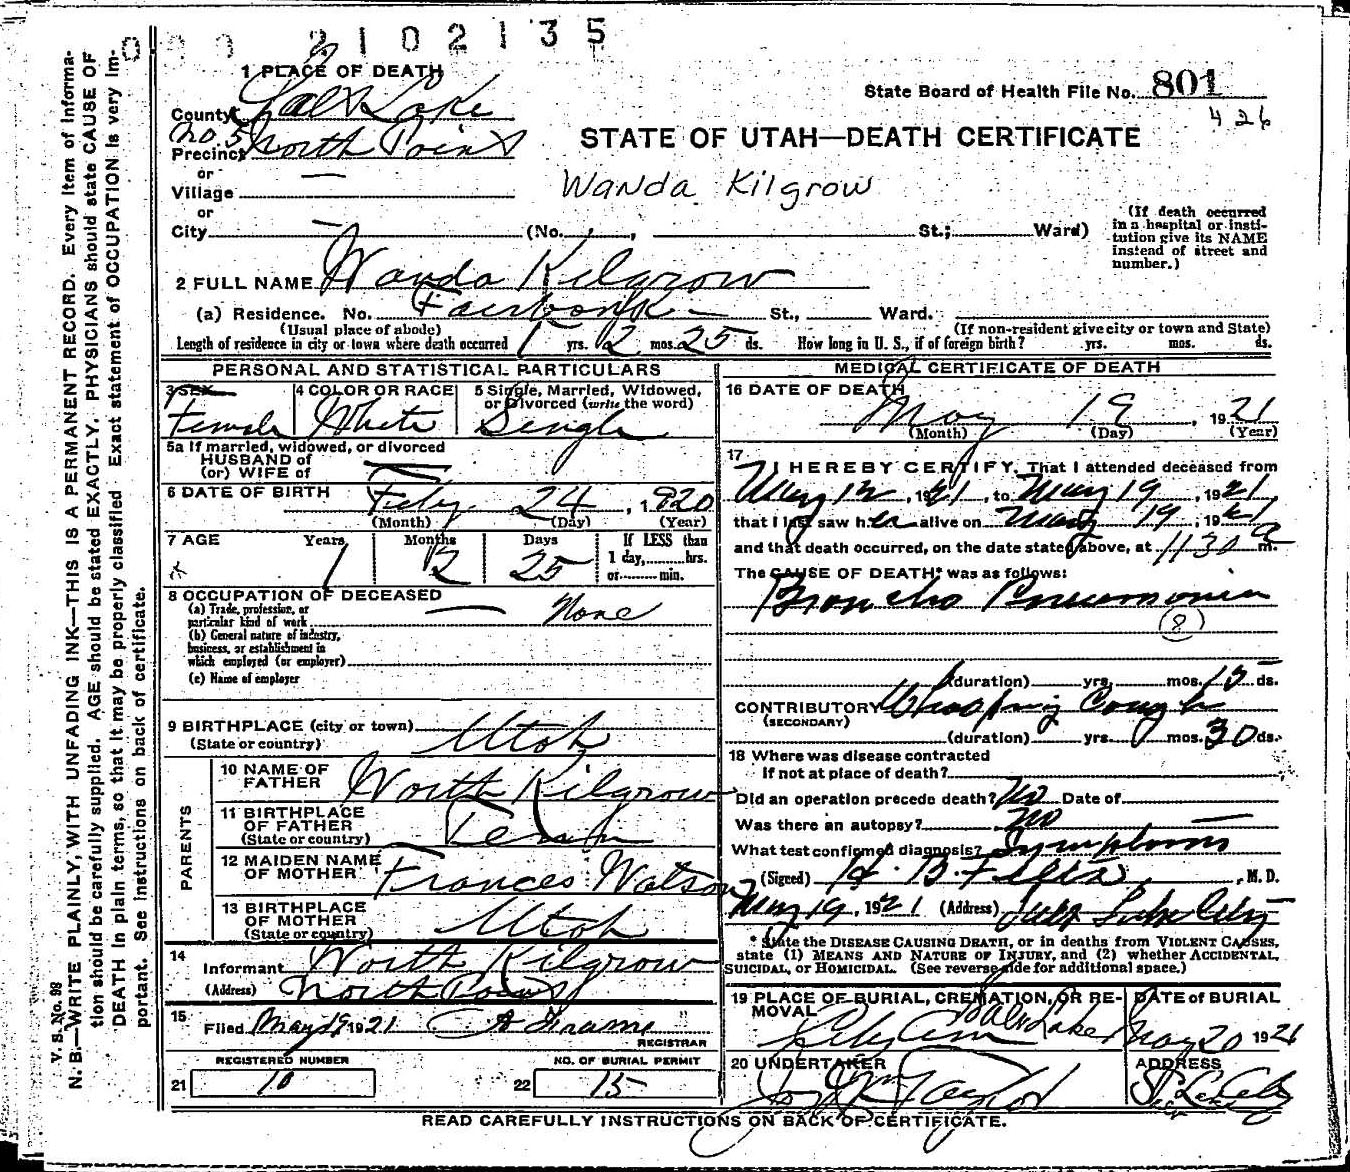 2102135
1 PLACE OF DEATH
State Board of Health File No. 801
County Salt Lake
426
No 5
Precinct North Point
STATE OF UTAH—DEATH CERTIFICATE
or
Village
Wanda Kilgrow
or
City (No. , St.; Ward)
(If death occurred in a hospital or institution give its NAME instead of street and number.)
2 FULL NAME Wanda Kilgrow
(a) Residence. No. Fairbanks St., Ward.
(Usual place of abode) (If non-resident give city or town and State)
Length of residence in city or town where death occurred 1 yrs. 2 mos. 25 ds. How long in U. S., if of foreign birth? yrs. mos. ds.
PERSONAL AND STATISTICAL PARTICULARS
3 SEX
Female
4 COLOR OR RACE
White
5 Single, Married, Widowed,
or Divorced (write the word)
Single
5a If married, widowed, or divorced
HUSBAND of
(or) WIFE of
6 DATE OF BIRTH Feby 24, 1920
(Month) (Day) (Year)
7 AGE Years Months Days If LESS than
1 2 25 1 day, hrs.
or min.
8 OCCUPATION OF DECEASED
(a) Trade, profession, or
particular kind of work None
(b) General nature of industry,
business, or establishment in
which employed (or employer)
(c) Name of employer
9 BIRTHPLACE (city or town)
(State or country) Utah
PARENTS
10 NAME OF
FATHER Worth Kilgrow
11 BIRTHPLACE
OF FATHER
(State or country) Tenn
12 MAIDEN NAME
OF MOTHER Frances Watson
13 BIRTHPLACE
OF MOTHER
(State or country) Utah
14
Informant Worth Kilgrow
(Address) North Point
15
Filed May 19 1921
REGISTRAR
REGISTERED NUMBER NO. OF BURIAL PERMIT
21 10 22 15
MEDICAL CERTIFICATE OF DEATH
16 DATE OF DEATH
May 19, 1921
(Month) (Day) (Year)
17
I HEREBY CERTIFY, That I attended deceased from
May 12, 1921, to May 19, 1921,
that I last saw her alive on May 19, 1921
and that death occurred, on the date stated above, at 1130 a m.
The CAUSE OF DEATH* was as follows:
Broncho Pneumonia
(8)
(duration) yrs. mos. 15 ds.
CONTRIBUTORY Whooping Cough
(SECONDARY)
(duration) yrs. mos. 30 ds.
18 Where was disease contracted
If not at place of death?
Did an operation precede death? No Date of
Was there an autopsy? No
What test confirmed diagnosis? Symptoms
(Signed) H. B. , M. D.
May 19, 1921 (Address) Salt Lake City
* State the DISEASE CAUSING DEATH, or in deaths from VIOLENT CAUSES,
state (1) MEANS AND NATURE OF INJURY, and (2) whether ACCIDENTAL,
SUICIDAL, or HOMICIDAL. (See reverse side for additional space.)
19 PLACE OF BURIAL, CREMATION, OR RE-
MOVAL
City Cem Salt Lake
DATE of BURIAL
May 20 1921
20 UNDERTAKER
Taylor
ADDRESS
Salt Lake City
READ CAREFULLY INSTRUCTIONS ON BACK OF CERTIFICATE.
V. S. No. 98
N. B.—WRITE PLAINLY, WITH UNFADING INK—THIS IS A PERMANENT RECORD. Every item of informa-
tion should be carefully supplied. AGE should be stated EXACTLY. PHYSICIANS should state CAUSE OF
DEATH in plain terms, so that it may be properly classified. Exact statement of OCCUPATION is very im-
portant. See instructions on back of certificate.